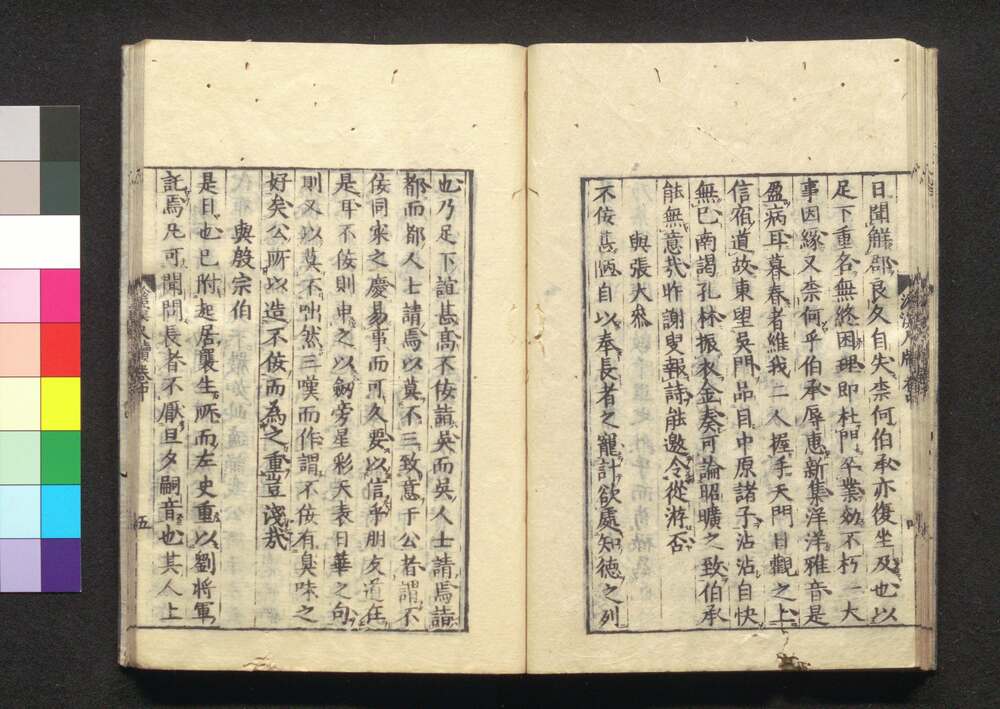 日聞解郡良久自失柰何伯承亦復坐及也以
足下重名無終困理即杜門卒業効不朽一大
事因緣又柰何乎伯承辱惠新集洋洋雅音是
盈病耳暮春者維我二人握手天門日觀之上
信宿道故東望吳門品目中原諸子沾沾自快
無已南謁孔林振衣金奏可論昭曠之致伯承
能無意哉昨謝叟報詩能邀令從游否
與張大參
不佞甚陋自以奉長者之寵計欲處知徳之列
也乃足下誼甚髙不佞請吳而吳人士請焉請
都而都人士請焉以莫不三致意于公者謂不
佞同宋之慶易事而可久要以信乎朋友道在
是耳不佞則申之以劔旁星彩天表日華之句
則又以莫不咄然三嘆而作謂不佞有臭味之
好矣公所以造不佞而為之重豈淺哉
與殷宗伯
是日也已附起居襲生所而左史重以劉将軍
託焉凡可聞問長者不厭旦夕嗣音也其人上
五